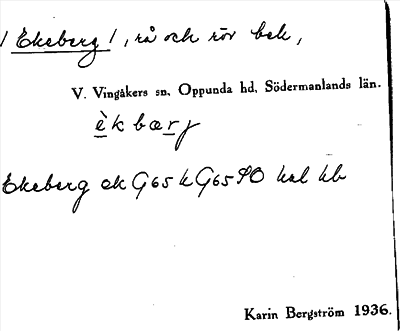 / Ekeberg /, rå och rör bek,
V. Vingåkers sn. Oppunda hd. Södermanlands län.
èkbærj
Ekeberg ek G65 k G65 SO hal hb
Karin Bergström 1936.